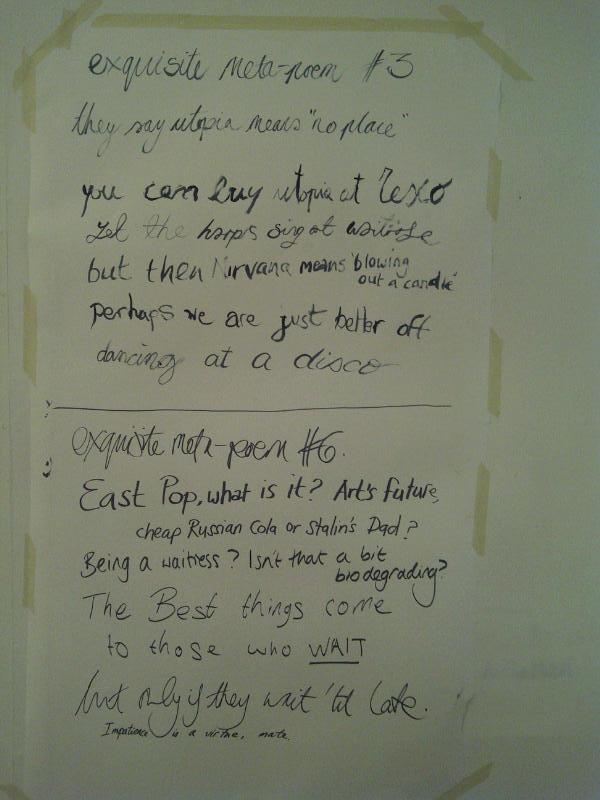 exquisite meta-poem #3
they say utopia means "no place"
you can buy utopia at Texo
Let the harps sing at waitrose
but then Nirvana means 'blowing
out a candle'
perhaps we are just better off
dancing at a disco
exquisite meta-poem #6.
East Pop, what is it? Art's future,
cheap Russian Cola or Stalin's Dad?
Being a waitress? Isn't that a bit
biodegrading?
The Best things come
to those who WAIT
but only if they wait 'til late.
Impatience is a virtue, mate.